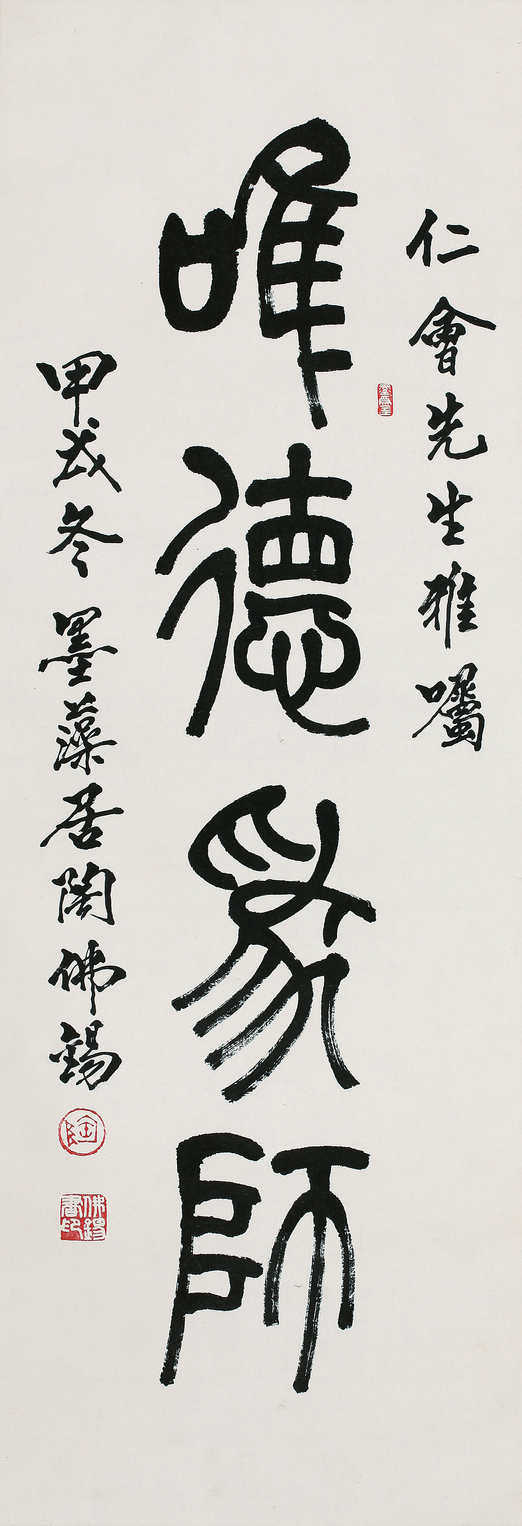 仁會先生雅囑
唯德為師
甲戌冬墨藻居陶佛錫
陶
佛錫書印